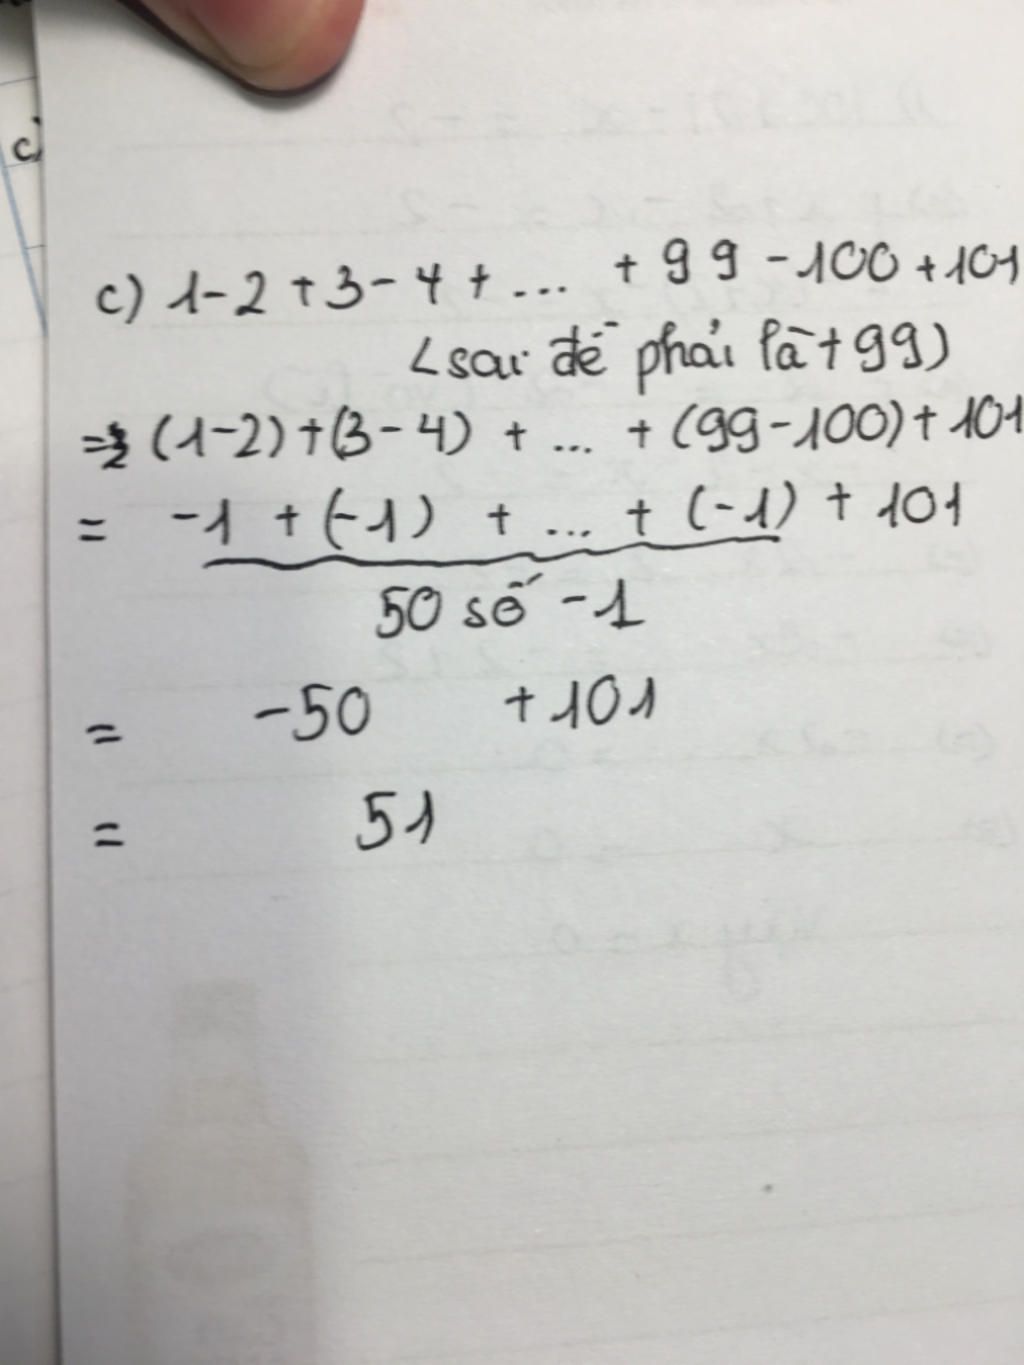 c)
c) 1-2+3-4+ ... + 99 -100 +101
(sai đề phải là +99)
= (1-2)+(3-4) + ... + (99-100)+101
= -1 + (-1) + ... + (-1) + 101
50 số -1
= -50 +101
= 51